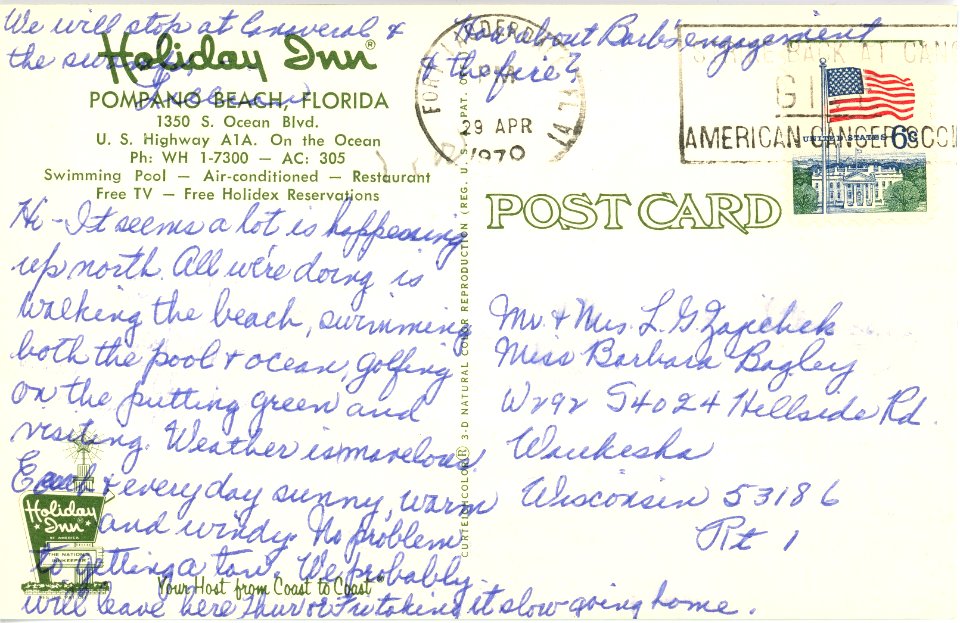 We will stop at Canaveral &
the
How about Barb's engagement
& the fire?
Holiday Inn®
POMPANO BEACH, FLORIDA
1350 S. Ocean Blvd.
U. S. Highway A1A. On the Ocean
Ph: WH 1-7300 — AC: 305
Swimming Pool — Air-conditioned — Restaurant
Free TV — Free Holidex Reservations
FORT LAUDERDALE
PM
29 APR
1970
AMERICAN CANCER SOCI
UNITED STATES 6c
POST CARD
Hi - It seems a lot is happening
up north. All we're doing is
walking the beach, swimming
both the pool & ocean, golfing
on the putting green and
visiting. Weather is marvelous
Each & everyday sunny, warm
and windy. No problem
to getting a tan. We probably
will leave here Thur or Fri taking it slow going home.
Holiday Inn
OF AMERICA
THE NATION'S
INNKEEPER
Your Host from Coast to Coast®
CURTEICHCOLOR® 3-D NATURAL COLOR REPRODUCTION (REG. U.S.A. PAT. O
Mr. & Mrs. L. G. Zapchek
Miss Barbara Bagley
W292 S4024 Hillside Rd.
Waukesha
Wisconsin 53186
Rt 1